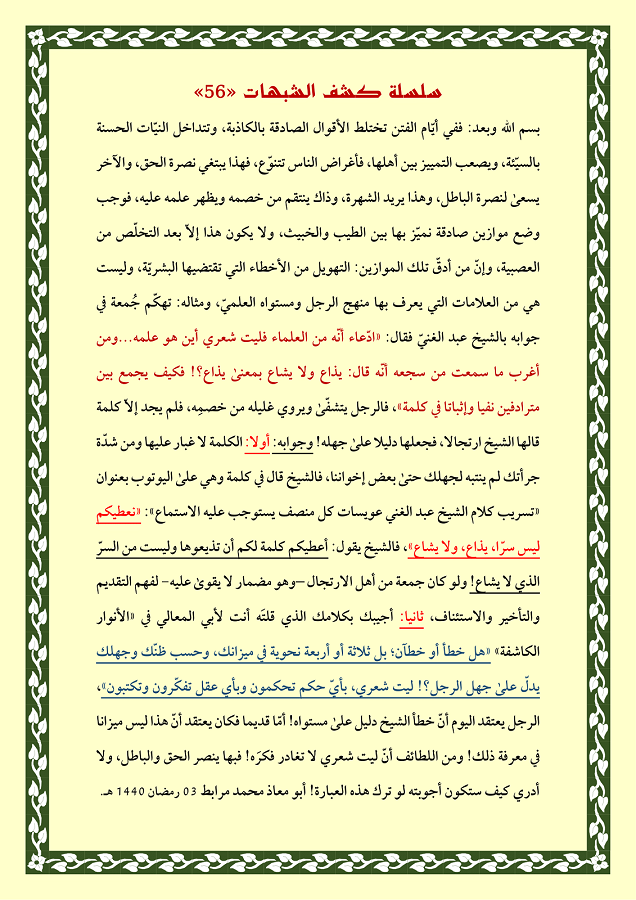 سلسلة كشف الشبهات «56»
بسم الله وبعد: ففي أيّام الفتن تختلط الأقوال الصادقة بالكاذبة، وتتداخل النيّات الحسنة
بالسيّئة، ويصعب التمييز بين أهلها، فأغراض الناس تتنوّع، فهذا يبتغي نصرة الحق، والآخر
يسعىٰ لنصرة الباطل، وهذا يريد الشهرة، وذاك ينتقم من خصمه ويظهر علمه عليه، فوجب
وضع موازين صادقة نميّز بها بين الطيب والخبيث، ولا يكون هذا إلاّ بعد التخلّص من
العصبية، وإنّ من أدقّ تلك الموازين: التهويل من الأخطاء التي تقتضيها البشريّة، وليست
هي من العلامات التي يعرف بها منهج الرجل ومستواه العلميّ، ومثاله: تهكّم جُمعة في
جوابه بالشيخ عبد الغنيّ فقال: «ادّعاء أنّه من العلماء فليت شعري أين هو علمه...ومن
أغرب ما سمعت من سجعه أنّه قال: يذاع ولا يشاع بمعنىٰ يذاع؟! فكيف يجمع بين
مترادفين نفيا وإثباتا في كلمة»، فالرجل يتشفّىٰ ويروي غليله من خصمِه، فلم يجد إلاّ كلمة
قالها الشيخ ارتجالا، فجعلها دليلا علىٰ جهله! وجوابه: أولا: الكلمة لا غبار عليها ومن شدّة
جرأتك لم ينتبه لجهلك حتىٰ بعض إخواننا، فالشيخ قال في كلمة وهي علىٰ اليوتوب بعنوان
«تسريب كلام الشيخ عبد الغني عويسات كل منصف يستوجب عليه الاستماع»: «نعطيكم
ليس سرّا، يذاع، ولا يشاع»، فالشيخ يقول: أعطيكم كلمة لكم أن تذيعوها وليست من السرّ
الذي لا يشاع! ولو كان جمعة من أهل الارتجال –وهو مضمار لا يقوىٰ عليه– لفهم التقديم
والتأخير والاستئناف، ثانيا: أجيبك بكلامك الذي قلتَه أنت لأبي المعالي في «الأنوار
الكاشفة» «هل خطأ أو خطآن؛ بل ثلاثة أو أربعة نحوية في ميزانك، وحسب ظنّك وجهلك
يدلّ علىٰ جهل الرجل؟! ليت شعري، بأيّ حكم تحكمون وبأي عقل تفكّرون وتكتبون»،
الرجل يعتقد اليوم أنّ خطأ الشيخ دليل علىٰ مستواه! أمّا قديما فكان يعتقد أنّ هذا ليس ميزانا
في معرفة ذلك! ومن اللطائف أنّ ليت شعري لا تغادر فكرَه! فبها ينصر الحق والباطل، ولا
أدري كيف ستكون أجوبته لو ترك هذه العبارة! أبو معاذ محمد مرابط 03 رمضان 1440 هـ.